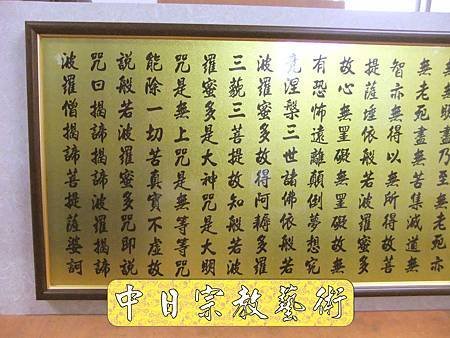 無無明盡乃至無老死亦
無老死盡無苦集滅道無
智亦無得以無所得故菩
提薩埵依般若波羅蜜多
故心無罣礙無罣礙故無
有恐怖遠離顛倒夢想究
竟涅槃三世諸佛依般若
波羅蜜多故得阿耨多羅
三藐三菩提故知般若波
羅蜜多是大神咒是大明
咒是無上咒是無等等咒
能除一切苦真實不虛故
說般若波羅蜜多咒即說
咒曰揭諦揭諦波羅揭諦
波羅僧揭諦菩提薩婆訶
中日宗教藝術